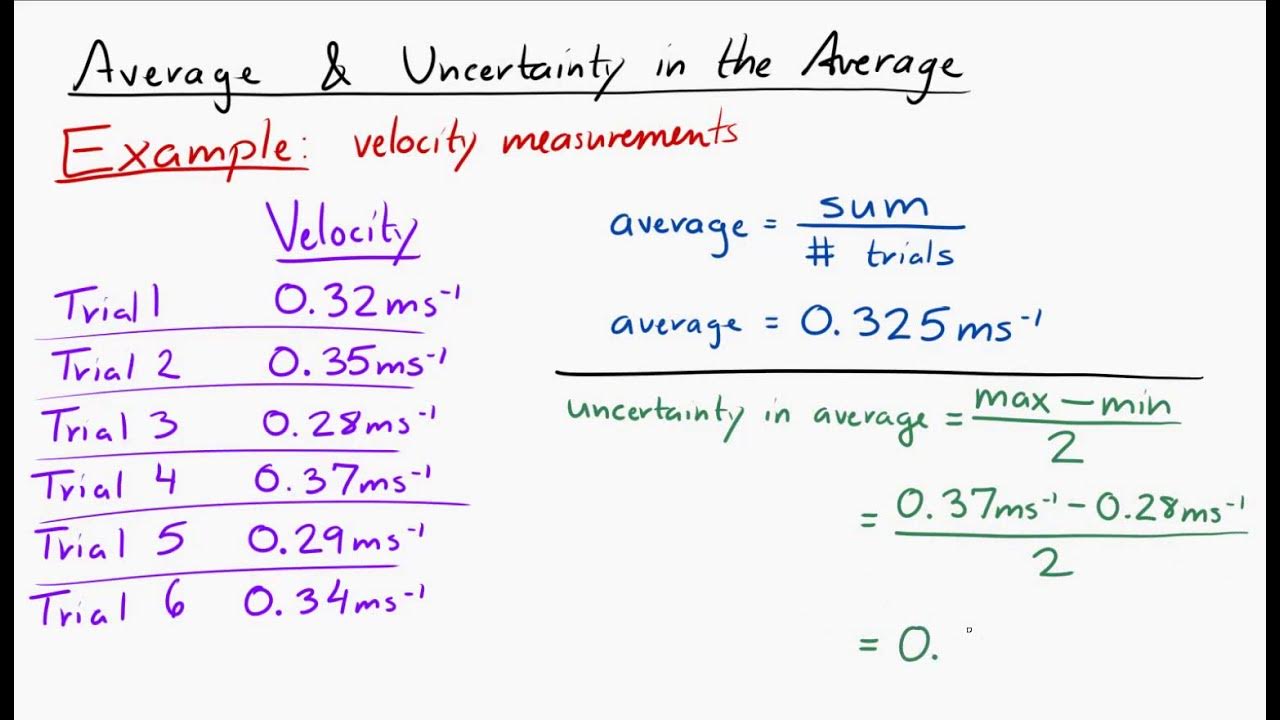 Average & Uncertainty in the Average
Example: velocity measurements
Velocity
Trial 1 0.32ms⁻¹
Trial 2 0.35ms⁻¹
Trial 3 0.28ms⁻¹
Trial 4 0.37ms⁻¹
Trial 5 0.29ms⁻¹
Trial 6 0.34ms⁻¹
average = sum
# trials
average = 0.325ms⁻¹
uncertainty in average = max – min
2
= 0.37ms⁻¹ – 0.28ms⁻¹
2
= 0.